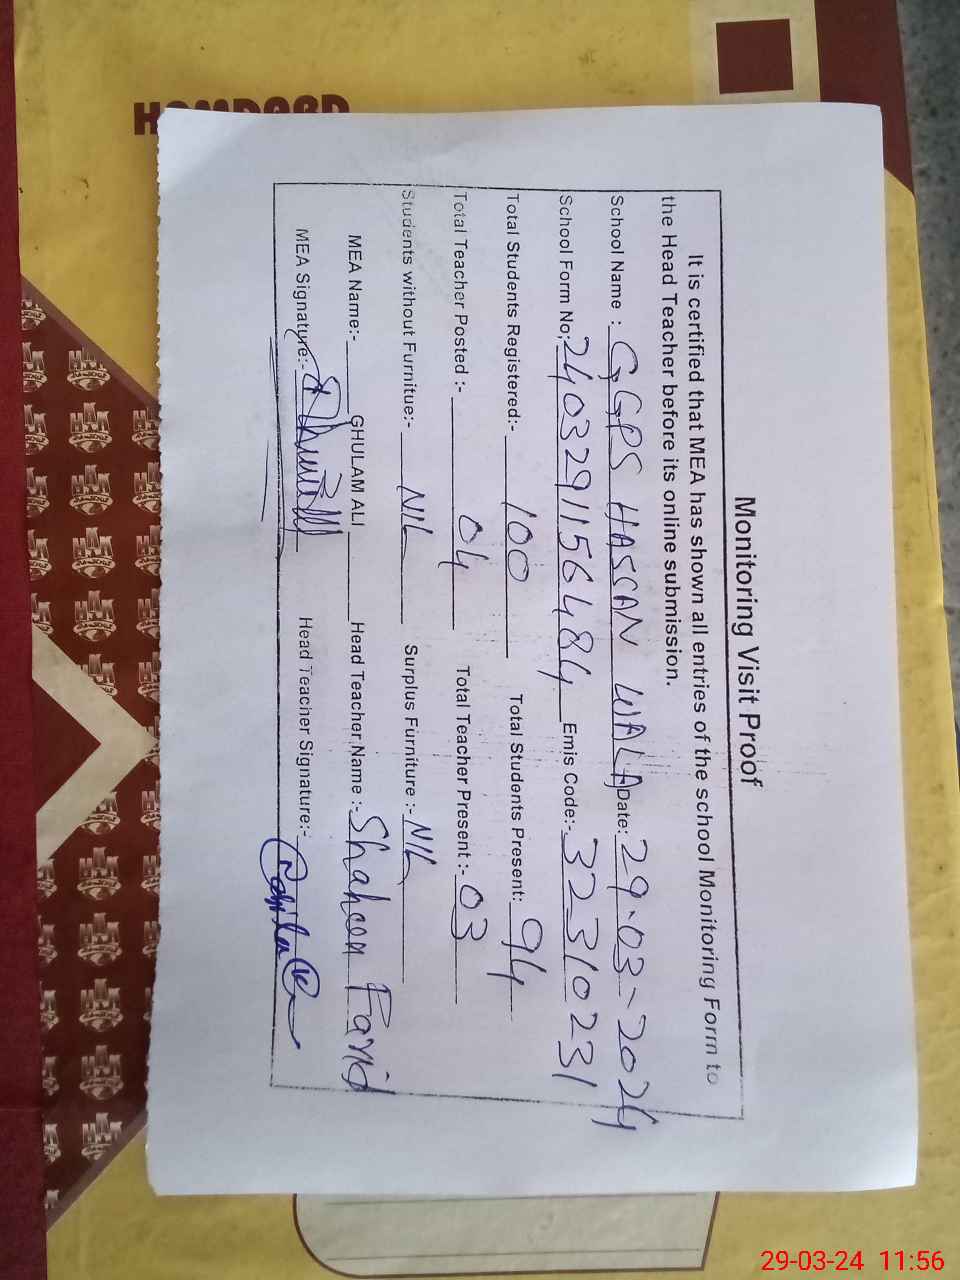 HAMDARD
Monitoring Visit Proof
It is certified that MEA has shown all entries of the school Monitoring Form to
the Head Teacher before its online submission.
School Name : GGPS HASSAN WALA Date: 29-03-2024
School Form No:- 24032911564 84 Emis Code:- 32231023
Total Students Registered:- 100 Total Students Present: 94
Total Teacher Posted :- 04 Total Teacher Present :- 03
Students without Furnitue:- NIL Surplus Furniture :- NIL
MEA Name:- GHULAM ALI Head Teacher Name :- Shaheen Farid
MEA Signature:- Head Teacher Signature:-
29-03-24 11:56